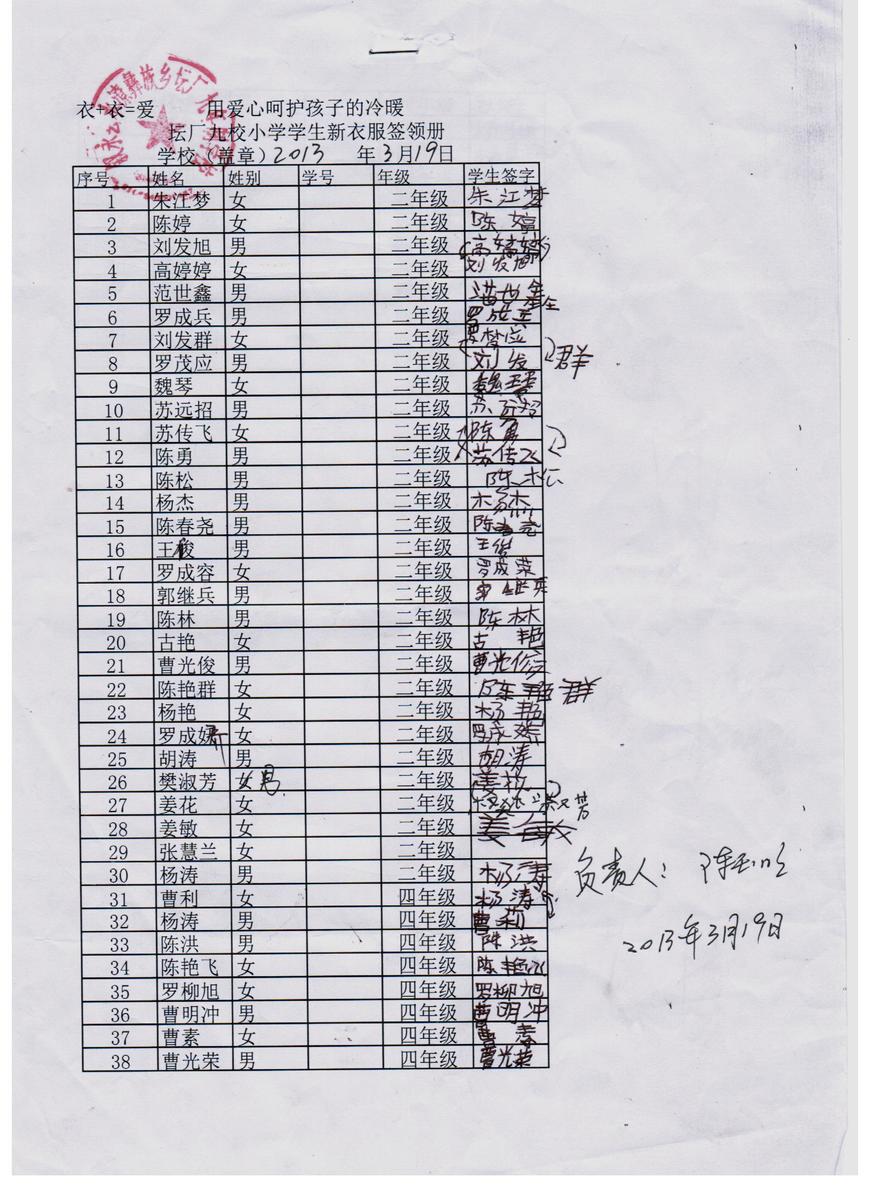 衣+衣=爱 用爱心呵护孩子的冷暖
坛厂九校小学学生新衣服签领册
学校（盖章）2013 年3月19日
序号 姓名 姓别 学号 年级 学生签字
1 朱江梦 女 二年级 朱江梦
2 陈婷 女 二年级 陈婷
3 刘发旭 男 二年级 高婷婷
4 高婷婷 女 二年级 刘发旭
5 范世鑫 男 二年级
6 罗成兵 男 二年级 罗成兵
7 刘发群 女 二年级
8 罗茂应 男 二年级 刘发群
9 魏琴 女 二年级 魏琴
10 苏远招 男 二年级 苏远招
11 苏传飞 女 二年级 陈勇
12 陈勇 男 二年级 苏传飞
13 陈松 男 二年级 陈松
14 杨杰 男 二年级 杨杰
15 陈春尧 男 二年级 陈春尧
16 王俊 男 二年级 王俊
17 罗成容 女 二年级 罗成荣
18 郭继兵 男 二年级
19 陈林 男 二年级 陈林
20 古艳 女 二年级 古艳
21 曹光俊 男 二年级 曹光俊
22 陈艳群 女 二年级 陈艳群
23 杨艳 女 二年级 杨艳
24 罗成 女 二年级 罗成
25 胡涛 男 二年级 胡涛
26 樊淑芳 女 男 二年级 姜花
27 姜花 女 二年级
28 姜敏 女 二年级 姜敏
29 张慧兰 女 二年级
30 杨涛 男 二年级 杨涛
31 曹利 女 四年级 杨涛
32 杨涛 男 四年级 曹利
33 陈洪 男 四年级 陈洪
34 陈艳飞 女 四年级 陈艳飞
35 罗柳旭 女 四年级 罗柳旭
36 曹明冲 男 四年级 曹明冲
37 曹素 女 四年级 曹素
38 曹光荣 男 四年级 曹光荣
负责人：陈
2013年3月19日